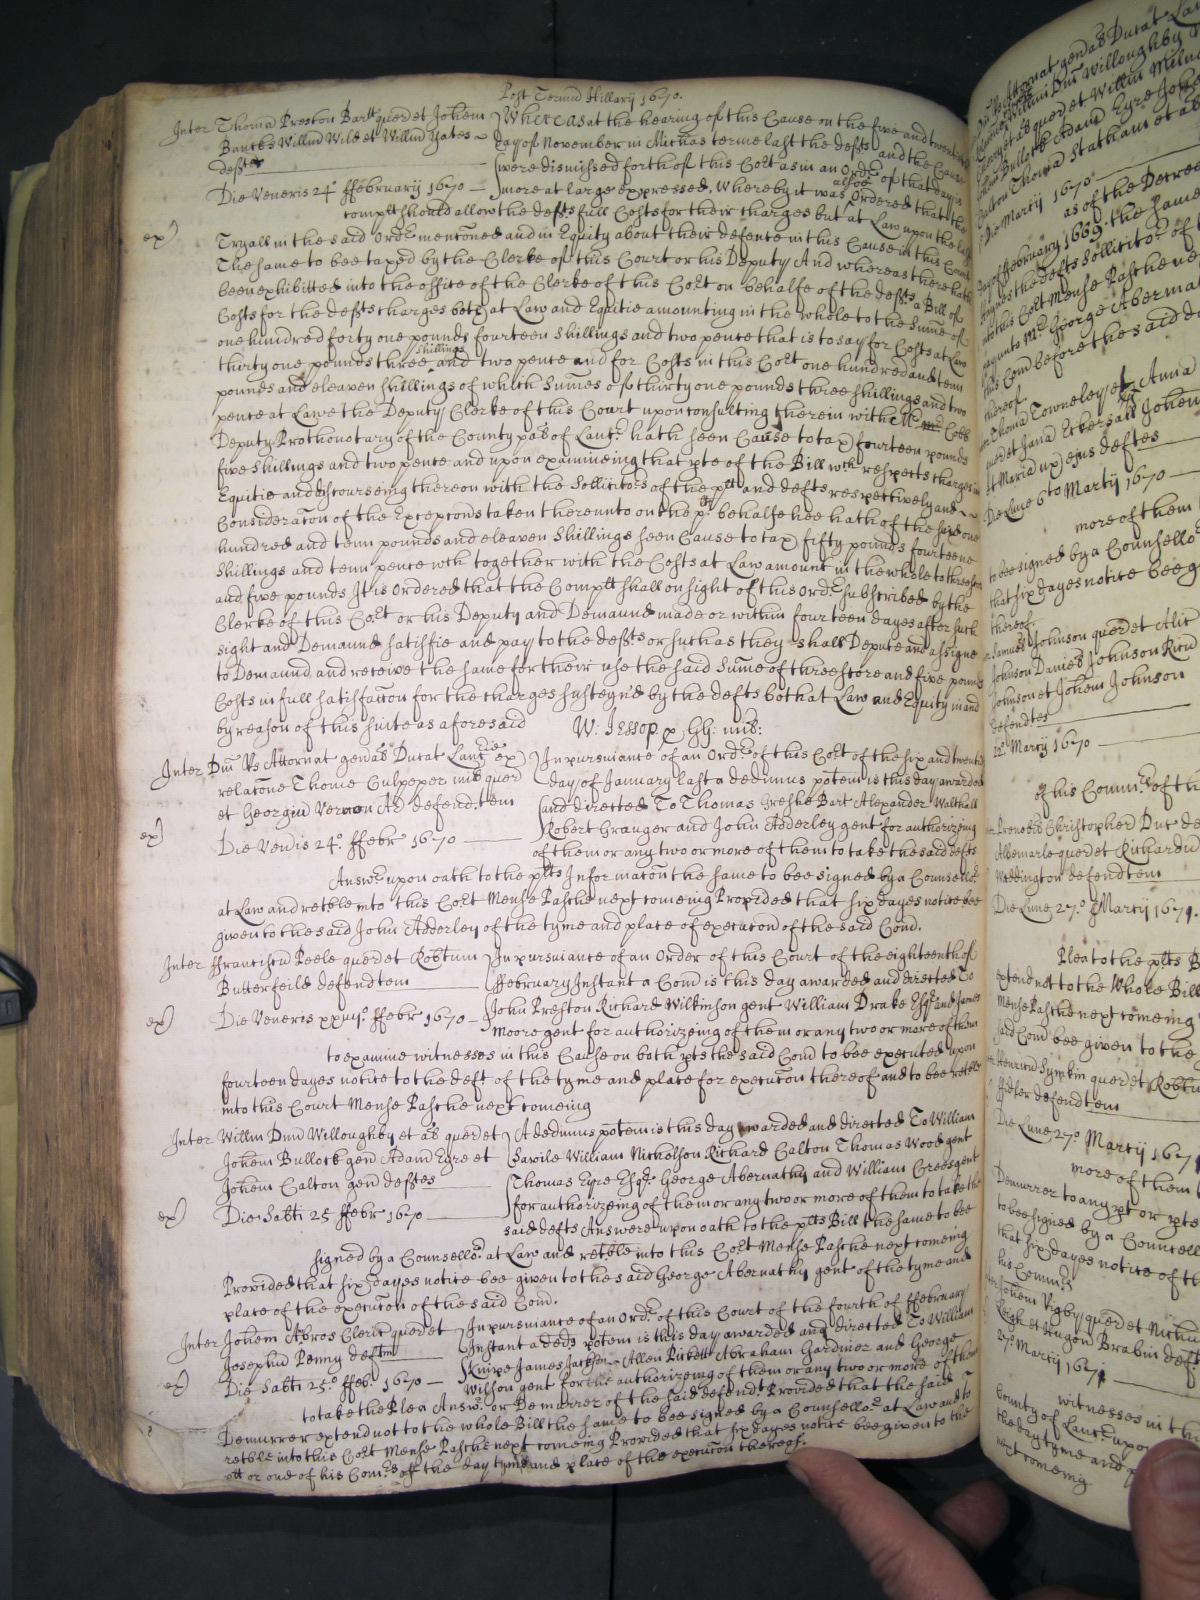 Post Termin Hillarij 1670.
Inter Thomā Preston Bartt quer et Johem
Banckes Willm Wild et Willm Yates
defts
Die Veneris 24° ffebruarij 1670
Whereas at the hearing of this Cause on the five and twentieth
day of November in Michas terme last the defts and the Cause
were dismissed forth of this Cort as in an Ordr of that day is
more at large expressed, whereby it was alsoe Ordered that the
complt should allow the defts full Costs for their charges but at Law upon the last
ex)
Tryall in the said Ordr mencōned and in Equity about their defence in this Cause in this Court
The same to bee taxed by the Clerke of this Court or his Deputy And whereas there hath
been exhibitted into the office of the Clerke of this Cort on behalfe of the defts a Bill of
Costs for the defts charges both at Law and Equitie amounting in the whole to the Sum̄e of
one hundred forty one pounds fourteen shillings and two pence that is to say for Costs at Law
thirty one pounds three shillings and two pence and for Costs in this Cort one hundred and tenn
pounds and eleaven shillings of which Sum̄es of thirty one pounds three shillings and two
pence at Lawe the Deputy Clerke of this Court upon consulting therein with Mr Cobb
Deputy Prothonotary of the County pat of Lancr hath seen Cause to tax fourteen pounds
five shillings and two pence and upon examineing that pte of the Bill wch respects charges in
Equitie and discourseing thereon with the Sollicitors of the plt and defts respectively and
Consideracōn of the Excepcōns taken thereunto on the plts behalfe hee hath of the said one
hundred and tenn pounds and eleaven shillings seen Cause to tax fifty pounds fourteene
shillings and tenn pence wch together with the Costs at Law amount in the whole to threescore
and five pounds It is Ordered that the Complt shall on sight of this Ordr subscribed by the
Clerke of this Cort or his Deputy and Demaund made or within fourteen dayes after such
sight and Demaund satisfie and pay to the defts or such as they shall Depute and assigne
to Demaund and receive the same for their use the said Sum̄e of threescore and five pounds
Costs in full satisfaccōn for the charges susteyned by the defts both at Law and Equity in and
by reason of this suite as aforesaid W: Jessop
Inter Dm̄ Rs Attornat genāl Ducat Lancr ex
relatione Thome Culpeper quer
et Georgiū Vernon Ar defendtem
ex)
Die Venris 24° ffebr 1670
In pursuiance of an Ordr of this Cort of the six and twentieth
day of January last a dedimus potem is this day awarded
and directed To Thomas Greske Bart Alexander Walthall
Robert Granger and John Adderley gent for authorizeing
of them or any two or more of them to take the said defts
Answr upon oath to the plts Informacōn the same to bee signed by a Counsellor
at Law and retble into this Cort Mense Pasche next comeing Provided that six dayes notice bee
given to the said John Adderley of the tyme and place of execucōn of the said Com̄.
Inter ffranciscū Peele quer et Robtum
Butterfeild defendtem
ex)
Die Veneris xxiiij° ffebr 1670
In pursuiance of an Order of this Court of the eighteenth of
ffebruary Instant a Com̄ is this day awarded and directed To
John Preston Richard Wilkinson gent William Drake Esqr and James
Moore gent for authorizeing of them or any two or more of them
to examine witnesses in this Cause on both pts the said Com̄ to bee executed upon
fourteen dayes notice to the deft of the tyme and place for execucōn thereof and to bee retble
into this Court Mense Pasche next comeing
Inter Willm Dnm Willoughby et al quer et
Johem Bullock gen Adam Eyre et
Johem Calton gen deftes
ex)
Die Sabti 25 ffebr 1670
A dedimus potem is this day awarded and directed To William
Savile William Nicholson Richard Calton Thomas Wood gent
Thomas Eyre Esqr George Abernathy and William Creesgent
for authorizeing of them or any two or more of them to take the
said defts Answere upon oath to the plts Bill the same to bee
signed by a Counsellor at Law and retble into this Cort Mense Pasche next comeing
Provided that six dayes notice bee given to the said George Abernathy gent of the tyme and
place of the execucōn of the said Com̄.
Inter Johem Abros Cleric quer et
Josephū Penny deftm
ex)
Die Sabti 25° ffeb. 1670
In pursuiance of an Ordr of this Court of the fourth of ffebruary
Instant a ded potem is this day awarded and directed To William
Knipe James Jackson Allen Rickett Abraham Gardner and George
Wilson gent for the authorizeing of them or any two or more of them
to take the Plea Answr or Demurrer of the said defendt Provided that the said
Demurrer extend not to the whole Bill the same to bee signed by a Counsellor at Law and to
retble into this Cort Mense Pasche next comeing Provided that six dayes notice bee given to the
plt or one of his Comrs of the day tyme and place of the execucōn thereof.
Die Martij 1670
as of the Decree
day of ffebruary 1669. the same
the defts Sollicitor of
into this Cort Mense Pasche ne
unto Mr George Aberna
this Com̄ before the said
thereof
Thomā Towneley et Anna
et Maria ux ejus deftes
Die Lune 6to Martij 1670
more of them
to bee signed by a Counsello
that six dayes notice bee g
thereof
Samuel Johnson quer et Alic
Johnson Daniel Johnson Ricū
Johnson et Johem Johnson
defendtes
Martij 1670
of his Comrs of th
Christopher Duc de
Albemarle quer et Richardū
Waddington defendtem
Die Lune 27° Martij 1671.
Plea to the plts B
extend not to the whole Bill
Mense Pasche next comeing
said Com̄ bee given to the
Henricū Symkin quer et Robtu
ffidler defendtem
Die Lune 27° Martij 1671
more of them
Demurrer to any pt or pts
to bee signed by a Councell
that six dayes notice of th
his Comrs
Johem Rigby quer et Nichu
Leigh et Hugon Brabin deft
27° Martij 1671
witnesses in th
County of Lancr upon
the day tyme and p
next comeing